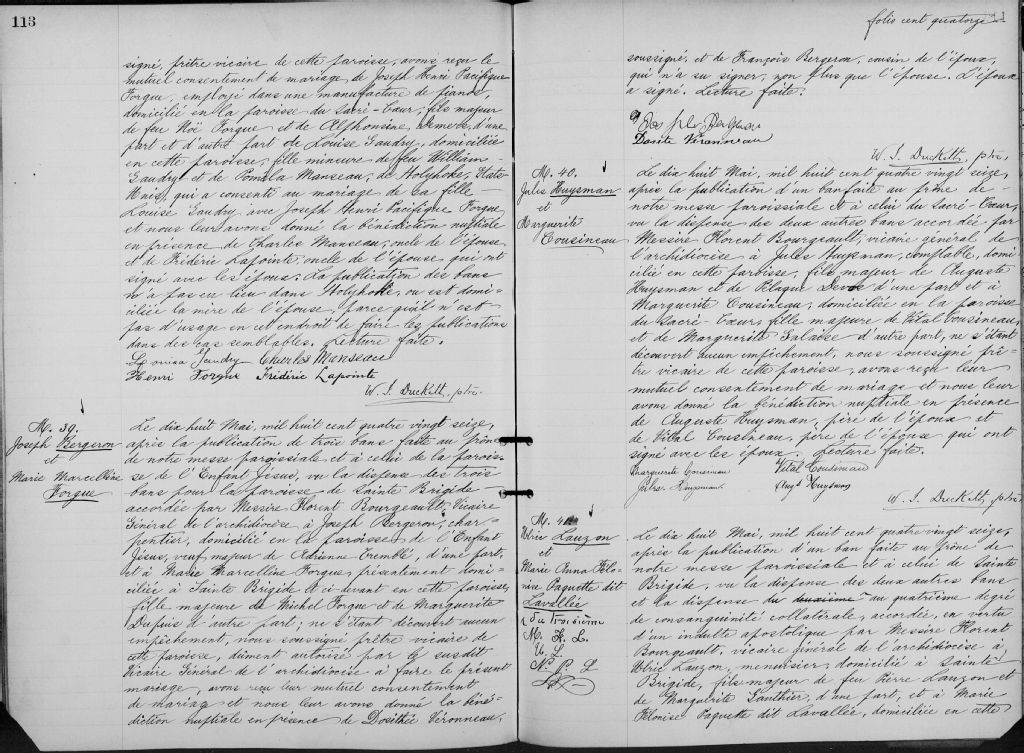 113
signé, prêtre vicaire de cette paroisse, avons reçu le
mutuel consentement de mariage de Joseph Henri Pacifique
Forgue, employé dans une manufacture de pianos,
domicilié en la paroisse du Sacré-Cœur, fils majeur
de feu Noé Forgue et de Alphonsine Demers, d'une
part et d'autre part de Louise Gaudry, domiciliée
en cette paroisse, fille mineure de feu William
Gaudry et de Romula Manseau, de Holyhoke, États-
Unis, qui a consenti au mariage de sa fille
Louise Gaudry avec Joseph Henri Pacifique Forgue
et nous leur avons donné la bénédiction nuptiale
en présence de Charles Manseau, oncle de l'épouse
et de Frédéric Lapointe, oncle de l'épouse qui ont
signé avec les époux. La publication des bans
n'a pas eu lieu dans Holyhoke, où est domi-
ciliée la mère de l'épouse, parce qu'il n'est
pas d'usage en cet endroit de faire les publications
dans des cas semblables. Lecture faite.
Gaudry Charles Manseau
Henri Forgue Frédéric Lapointe
W. J. Duckett, ptre.
M. 39.
Joseph Bergeron
et
Marie Marcelline
Forgue
Le dix huit Mai, mil huit cent quatre vingt seize,
après la publication de trois bans faite au prône
de notre messe paroissiale et à celui de la parois-
se de l'Enfant Jésus, vu la dispense des trois
bans pour la paroisse de Sainte Brigide
accordée par Messire Florent Bourgeault, Vicaire
Général de l'archidiocèse à Joseph Bergeron, char-
pentier, domicilié en la paroisse de l'Enfant
Jésus, veuf majeur de Adrienne Tremblé, d'une part,
et à Marie Marcelline Forgue, présentement domi-
ciliée à Sainte Brigide et ci-devant en cette paroisse,
fille majeure de Michel Forgue et de Marguerite
Dupuis d'autre part; ne s'étant découvert aucun
empêchement, nous soussigné prêtre vicaire de
cette paroisse, dûment autorisé par le susdit
Vicaire Général de l'archidiocèse à faire le présent
mariage, avons reçu leur mutuel consentement
de mariage et nous leur avons donné la béné-
diction nuptiale en présence de Dosithée Véronneau,
folio cent quatorze
soussigné, et de François Bergeron, cousin de l'époux,
qui n'a su signer, non plus que l'épouse. L'époux
a signé. Lecture faite.
Bergeron
Dosite Véronneau
W. J. Duckett, ptre.
M. 40.
Jules Huysman
et
Marguerite
Cousineau
Le dix huit Mai, mil huit cent quatre vingt seize,
après la publication d'un ban faite au prône de
notre messe paroissiale et à celui du Sacré-Cœur,
vu la dispense des deux autres bans accordée par
Messire Florent Bourgeault, vicaire général de
l'archidiocèse à Jules Huysman, comptable, domi-
cilié en cette paroisse, fils majeur de Auguste
Huysman et de Pélagie d'une part et à
Marguerite Cousineau, domiciliée en la paroisse
du Sacré-Cœur, fille majeure de Vital Cousineau,
et de Marguerite d'autre part, ne s'étant
découvert aucun empêchement, nous soussigné prê-
tre vicaire de cette paroisse, avons reçu leur
mutuel consentement de mariage et nous leur
avons donné la bénédiction nuptiale en présence
de Auguste Huysman, père de l'époux et
de Vital Cousineau, père de l'épouse qui ont
signé avec les époux. Lecture faite.
Marguerite Cousineau Vital Cousineau
Jules Huysman Aug. Huysman
W. J. Duckett, ptre
M. 41
Ulric Lauzon
et
Marie Anna Hélo-
nise Paquette dit
Lavallée
du troisième
Le dix huit Mai, mil huit cent quatre vingt seize,
après la publication d'un ban faite au prône de
notre messe paroissiale et à celui de Sainte
Brigide, vu la dispense des deux autres bans
et la dispense du deuxième au quatrième degré
de consanguinité collatérale, accordée, en vertu
d'un indulte apostolique par Messire Florent
Bourgeault, vicaire général de l'archidiocèse à
Ulric Lauzon, menuisier, domicilié à Sainte
Brigide, fils majeur de feu Pierre Lauzon et
de Marguerite Gauthier, d'une part, et à Marie
Hélonise Paquette dit Lavallée, domiciliée en cette